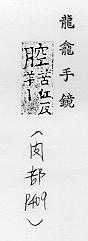 龍龕手鏡
腔苦江反
羊丨
（肉部
P409）